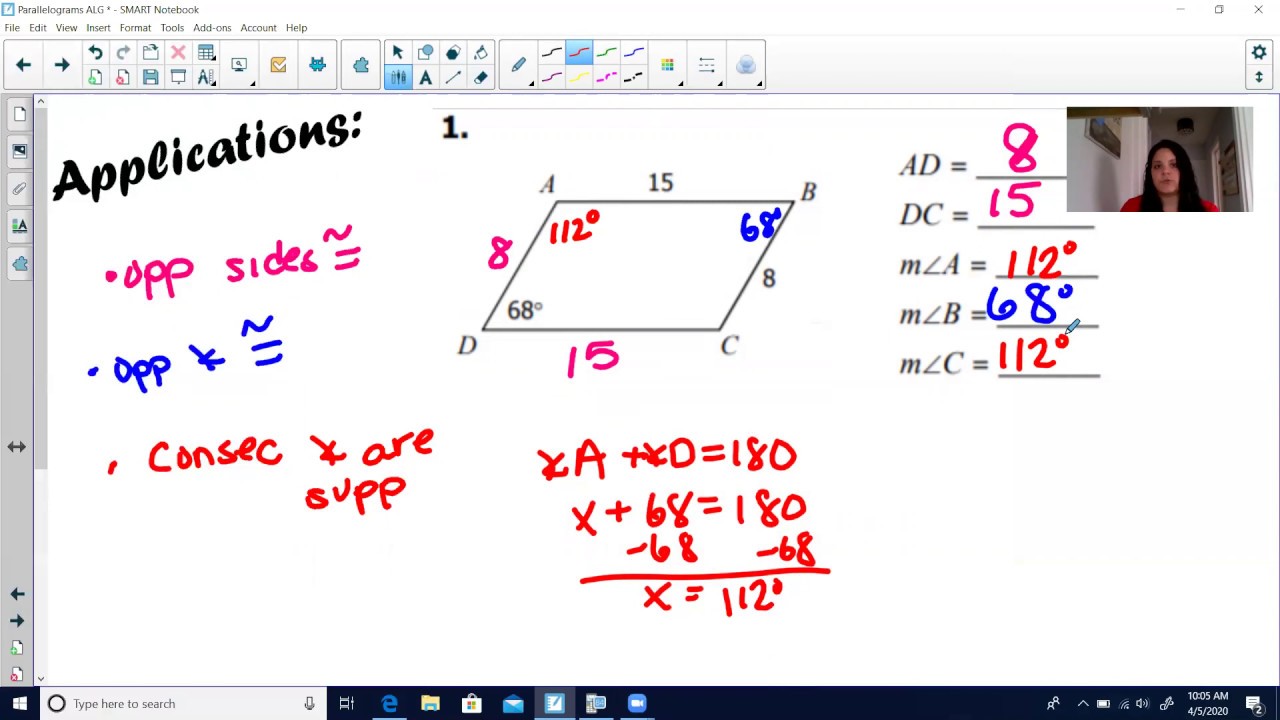 Parallelograms ALG * - SMART Notebook
File Edit View Insert Format Tools Add-ons Account Help
Applications:
· opp sides ≅
· opp ∡ ≅
· consec ∡ are
supp
1.
A 15 B
112° 68°
8 8
68°
D 15 C
AD = 8
DC = 15
m∠A = 112°
m∠B = 68°
m∠C = 112°
∡A + ∡D = 180
x + 68 = 180
-68 -68
x = 112°
Type here to search
10:05 AM
4/5/2020
2